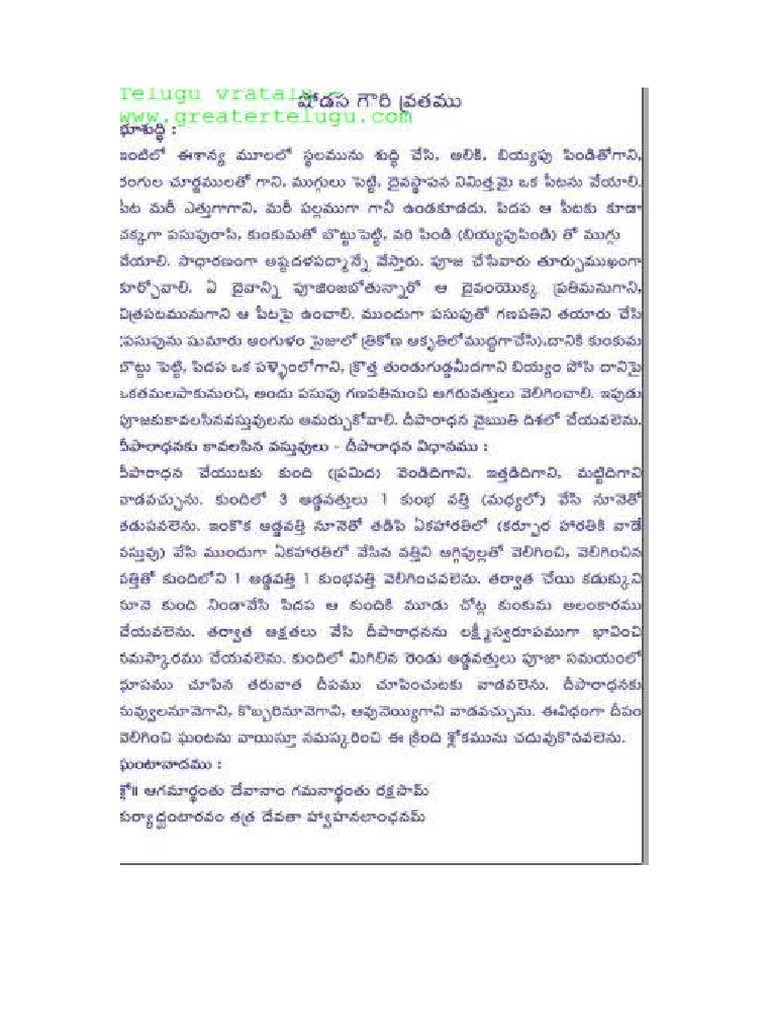 Telugu vratalu -
షోడస గౌరి వ్రతము
www.greatertelugu.com
భూశుద్ధి :
ఇంటిలో ఈశాన్య మూలలో స్థలమును శుద్ధి చేసి, అలికి, బియ్యపు పిండితోగాని,
రంగుల చూర్ణములతో గాని, ముగ్గులు పెట్టి, దైవస్థాపన నిమిత్తమై ఒక పీటను వేయాలి.
పీట మరీ ఎత్తుగాగాని, మరీ పల్లముగా గానీ ఉండకూడదు. పిదప ఆ పీటకు కూడా
చక్కగా పసుపురాసి, కుంకుమతో బొట్టుపెట్టి, వరి పిండి (బియ్యపుపిండి) తో ముగ్గు
వేయాలి. సాధారణంగా అష్టదళపద్మాన్నే వేస్తారు. పూజ చేసేవారు తూర్పుముఖంగా
కూర్చోవాలి. ఏ దైవాన్ని పూజింజబోతున్నారో ఆ దైవంయొక్క ప్రతిమనుగాని,
చిత్రపటమునుగాని ఆ పీటపై ఉంచాలి. ముందుగా పసుపుతో గణపతిని తయారు చేసి
(పసుపును షుమారు అంగుళం సైజులో త్రికోణ ఆకృతిలోముద్దగాచేసి),దానికి కుంకుమ
బొట్టు పెట్టి, పిదప ఒక పళ్ళెంలోగాని, క్రొత్త తుండుగుడ్డమీదగాని బియ్యం పోసి దానిపై
ఒకతమలపాకునుంచి, అందు పసుపు గణపతినుంచి అగరువత్తులు వెలిగించాలి. ఇపుడు
పూజకుకావలసినవస్తువులను అమర్చుకోవాలి. దీపారాధన నైఋతి దిశలో చేయవలెను.
దీపారాధనకు కావలసిన వస్తువులు - దీపారాధన విధానము :
దీపారాధన చేయుటకు కుంది (ప్రమిద) వెండిదిగాని, ఇత్తడిదిగాని, మట్టిదిగాని
వాడవచ్చును. కుందిలో 3 అడ్డవత్తులు 1 కుంభ వత్తి (మధ్యలో) వేసి నూనెతో
తడుపవలెను. ఇంకొక అడ్డవత్తి నూనెతో తడిపి ఏకహారతిలో (కర్పూర హారతికి వాడే
వస్తువు) వేసి ముందుగా ఏకహారతిలో వేసిన వత్తిని అగ్గిపుల్లతో వెలిగించి, వెలిగించిన
వత్తితో కుందిలోని 1 అడ్డవత్తి 1 కుంభవత్తి వెలిగించవలెను. తర్వాత చేయి కడుక్కుని
నూనె కుంది నిండావేసి పిదప ఆ కుందికి మూడు చోట్ల కుంకుమ అలంకారము
చేయవలెను. తర్వాత అక్షతలు వేసి దీపారాధనను లక్ష్మీస్వరూపముగా భావించి
నమస్కారము చేయవలెను. కుందిలో మిగిలిన రెండు అడ్డవత్తులు పూజా సమయంలో
ధూపము చూపిన తరువాత దీపము చూపించుటకు వాడవలెను. దీపారాధనకు
నువ్వులనూనెగాని, కొబ్బరినూనెగాని, ఆవునెయ్యిగాని వాడవచ్చును. ఈవిధంగా దీపం
వెలిగించి ఘంటను వాయిస్తూ నమస్కరించి ఈ క్రింది శ్లోకమును చదువుకొనవలెను.
ఘంటానాదము :
శ్లో॥ ఆగమార్థంతు దేవానాం గమనార్థంతు రక్షసామ్
కుర్యాద్ఘంటారవం తత్ర దేవతా హ్వాహనలాంఛనమ్